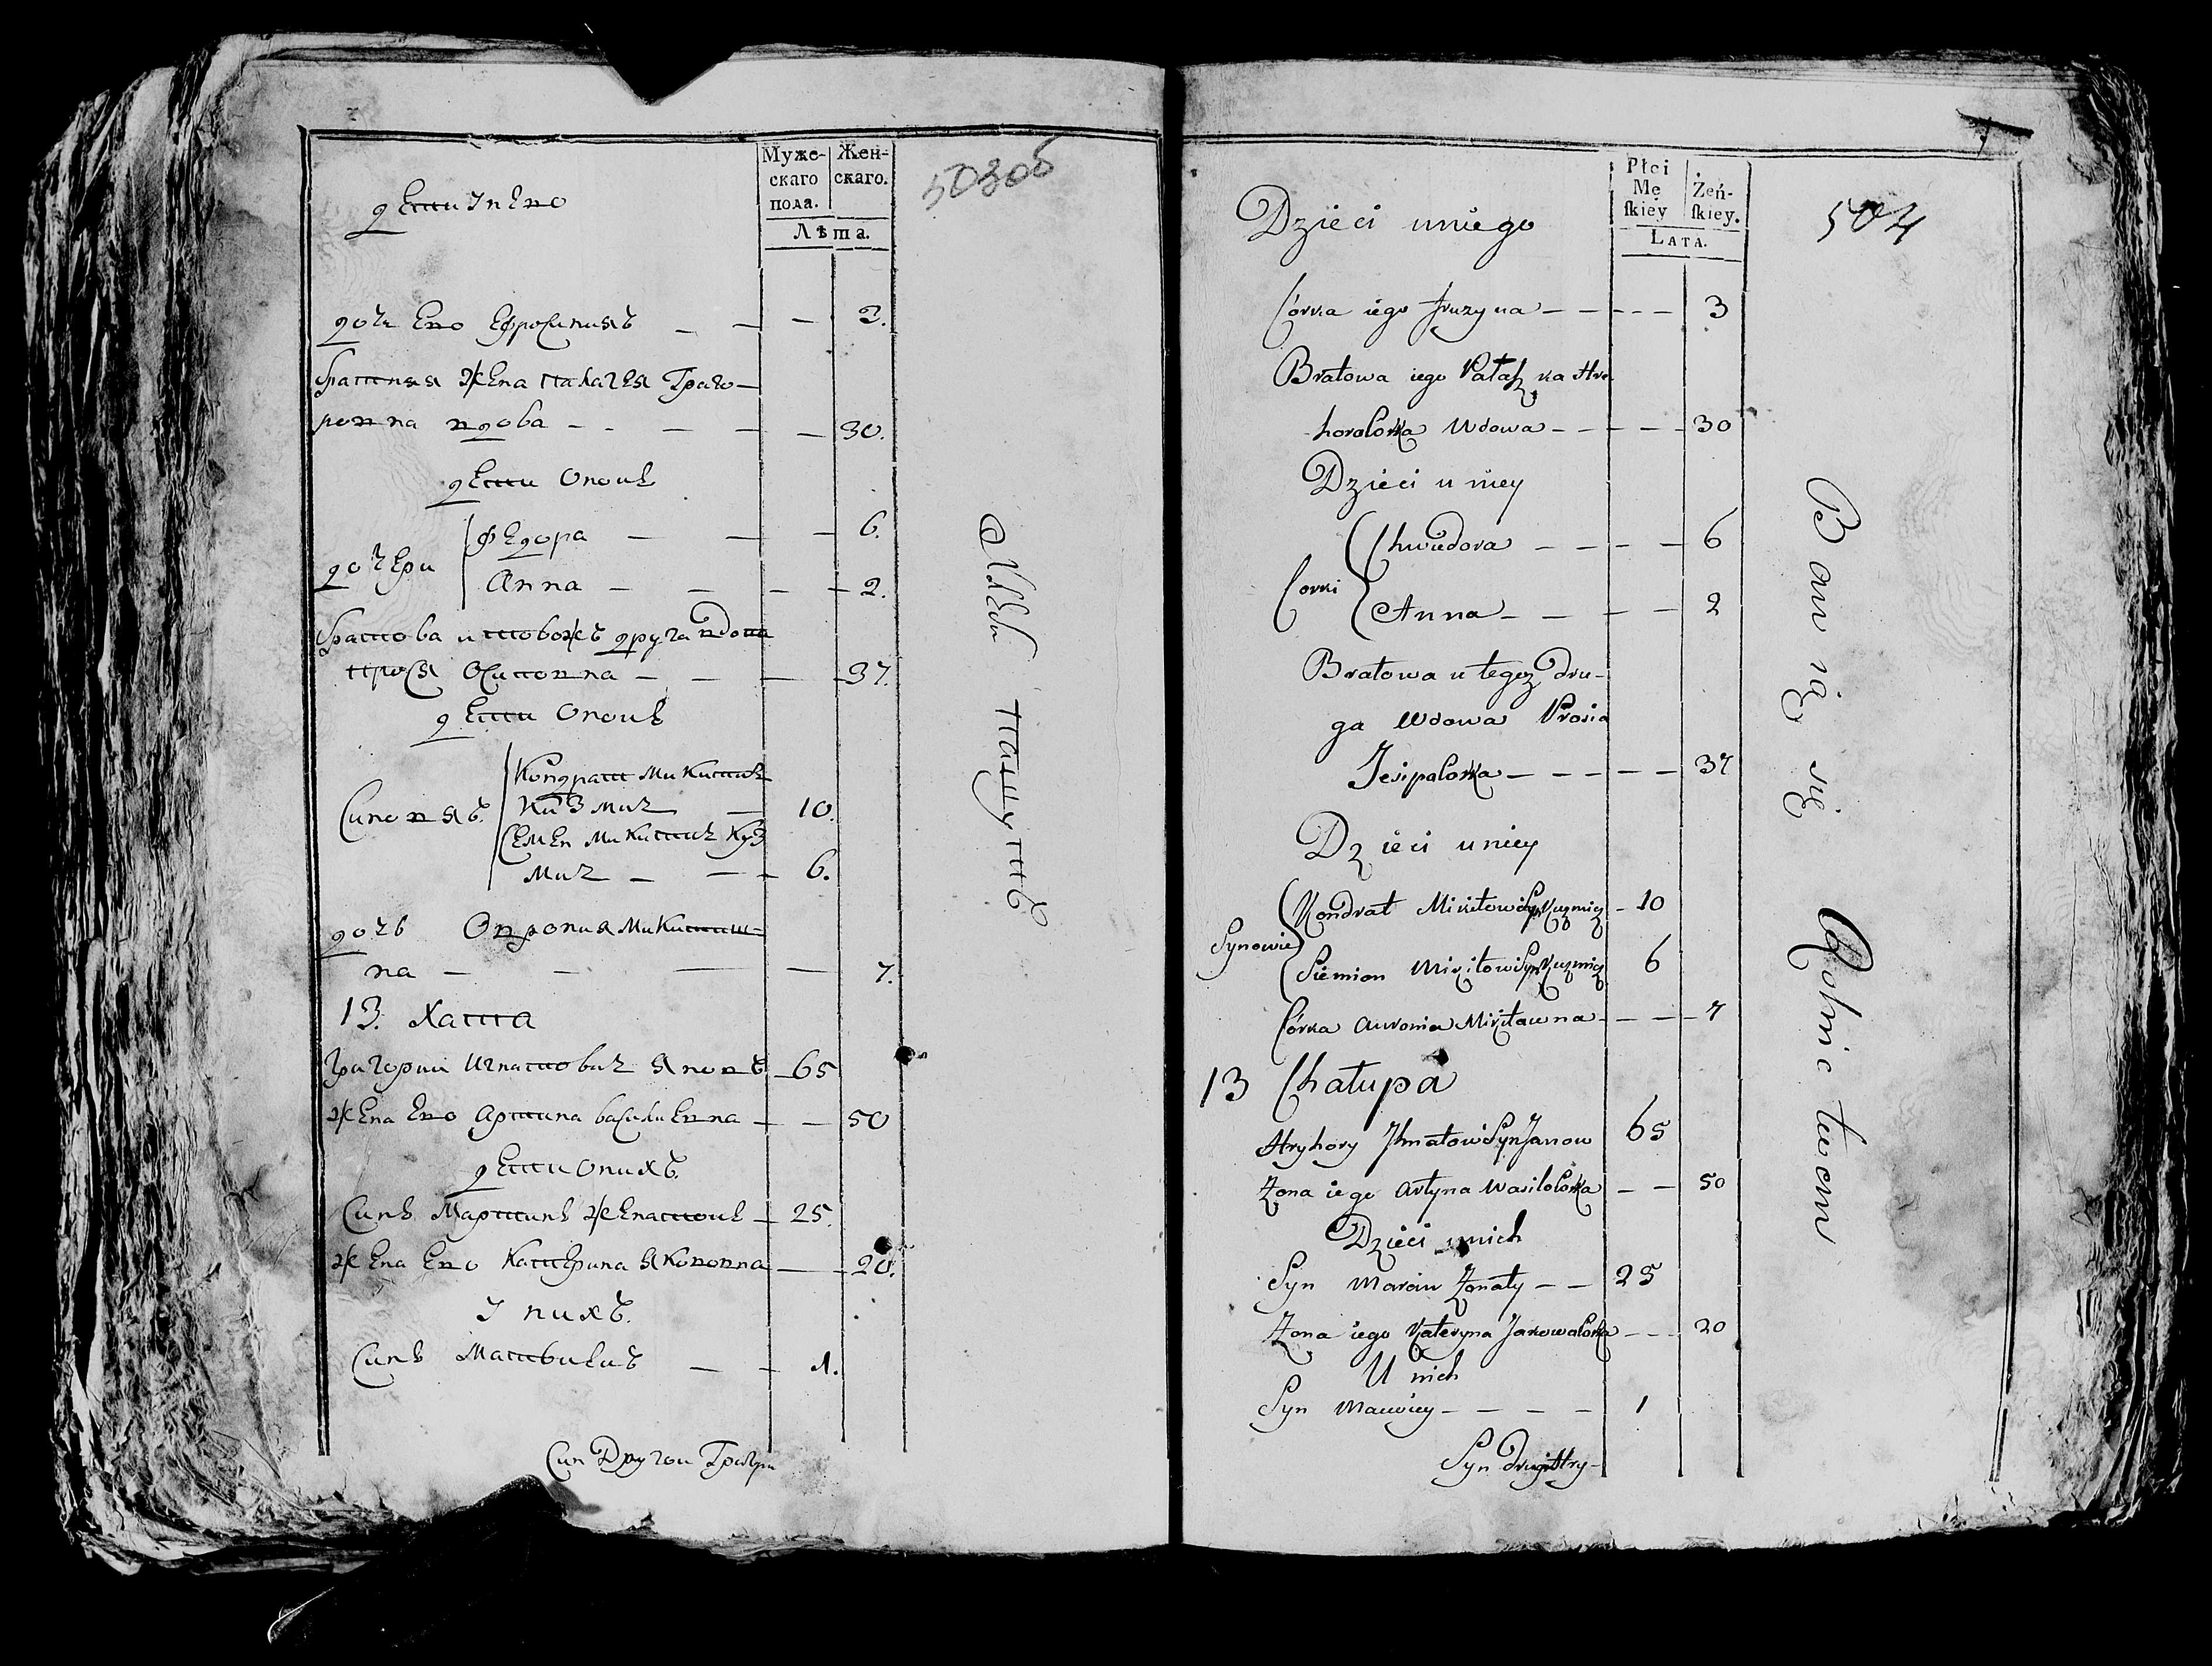 Муже-
скаго
пола.
Жен-
скаго.
Лѣта.
503об
дети у него
дочь его Ефросинияъ — — — 3.
братняя жена палагея Григо-
ровна вдова — — — 30.
дети онои
дочери
федора — — — 6.
Анна — — — 2.
братова и тововжъ друга вдова
прося Осиповна — — — 37.
дети онои
Синовяъ.
Кондрат Микитич
Кузмич — 10.
Семен Микитич Куз
мич — — — 6.
дочь Овдопия Микитиш-
на — — — 7.
13. Хата
Григории Игнатович Яновъ — 65
жена его Артина василиевна — — 50
дети онихъ.
Синъ Мартинъ женатои — 25.
жена его Катерина Яковна — — 20.
у нихъ.
Синъ Матвиеиъ — — 1.
Син Другои Григори
Płci
Mę
skiey
Żeń-
skiey.
LATA.
504
Dzieci uniego
Córka iego Fruzyna — — — — 3
Bratowa iego Pałaszka Hre
horolowka Wdowa — — — — 30
Dzieci u niey
Corki
Chwiedora — — — — 6
Anna — — — — 2
Bratowa u tegoz dru-
ga Wdowa Prosia
Jesipalowka — — — — — 37
Dzieci u niey
Synowie
Kondrat Mikitowi Syn Kuzmicz — 10
Siemion Mikitowi Syn Kuzmicz 6
Córka Awronia Mikitawna — — — 7
13 Chałupa
Hryhory Jhnatowi Syn Janow 65
Zona iego Artyna Wasilolowka — — 50
Dzieci unich
Syn Marcin Zonaty — — 25
Zona iego Kateryna Jakowalowka — — 20
U nich
Syn Maciwiey — — — — 1
Syn drugi Hry-
Bawią się Rolnictwem